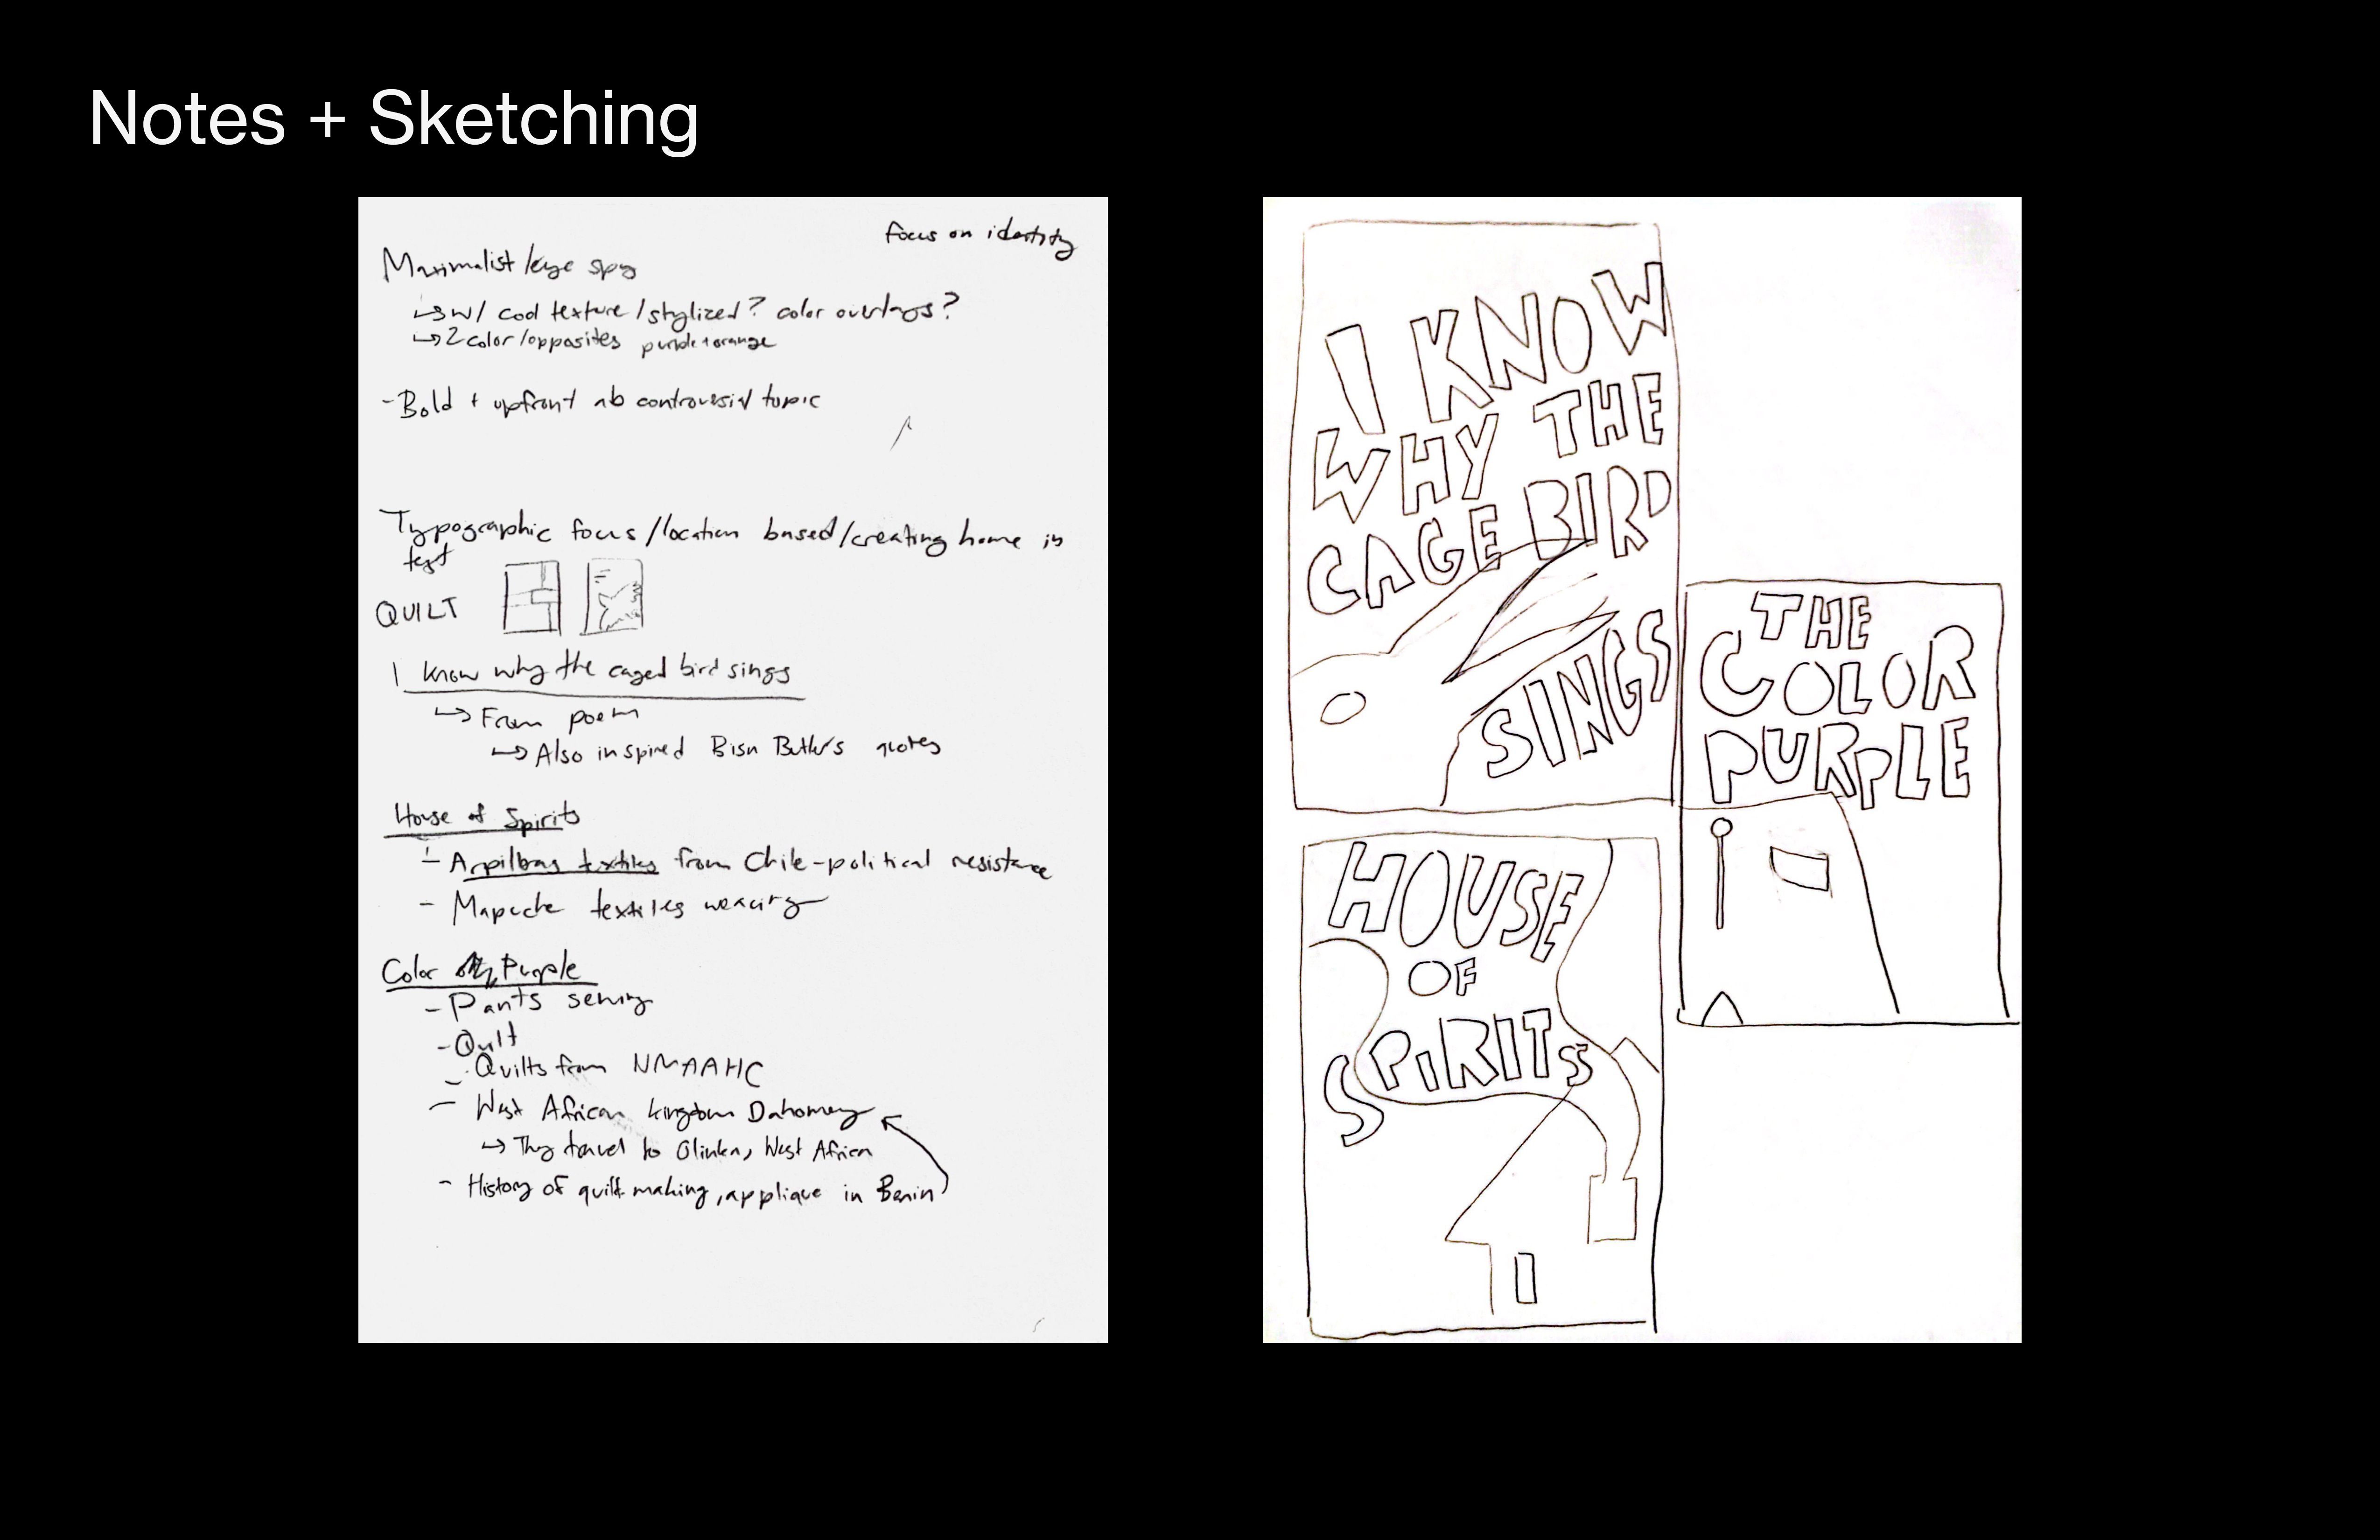 Notes + Sketching
focus on identity
Maximalist/eye spy
↳ w/ cool texture/stylized? color overlays?
↳ 2 color/opposites purple+orange
- Bold + upfront ab controversial topic
Typographic focus/location based/creating home in
text
QUILT
I know why the caged bird sings
↳ From poem
↳ Also inspired Bisa Butler's quotes
House of Spirits
- Arpilleras textiles from Chile-political resistance
- Mapuche textiles weaving
Color Purple
- Pants sewing
- Quilt
- Quilts from NMAAHC
- West African kingdom Dahomey
↳ They travel to Olinka, West Africa
- History of quilt making, applique in Benin
I KNOW
WHY THE
CAGE BIRD
SINGS
THE
COLOR
PURPLE
HOUSE
OF
SPIRITS